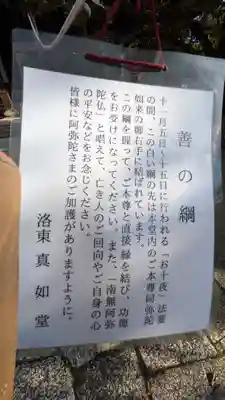 善の綱
十一月五日〜十五日に行われる「お十夜」法要
の間、この白い綱の先は本堂内のご本尊阿弥陀
如来の御右手に結ばれています。
この綱を握って、ご本尊と直接縁を結び、功徳
をお受けになってください。また、「南無阿弥
陀仏」と唱えて、亡き人のご回向やご自身の心
の平安などをお念じください。
皆様に阿弥陀さまのご加護がありますように。
洛東 真如堂